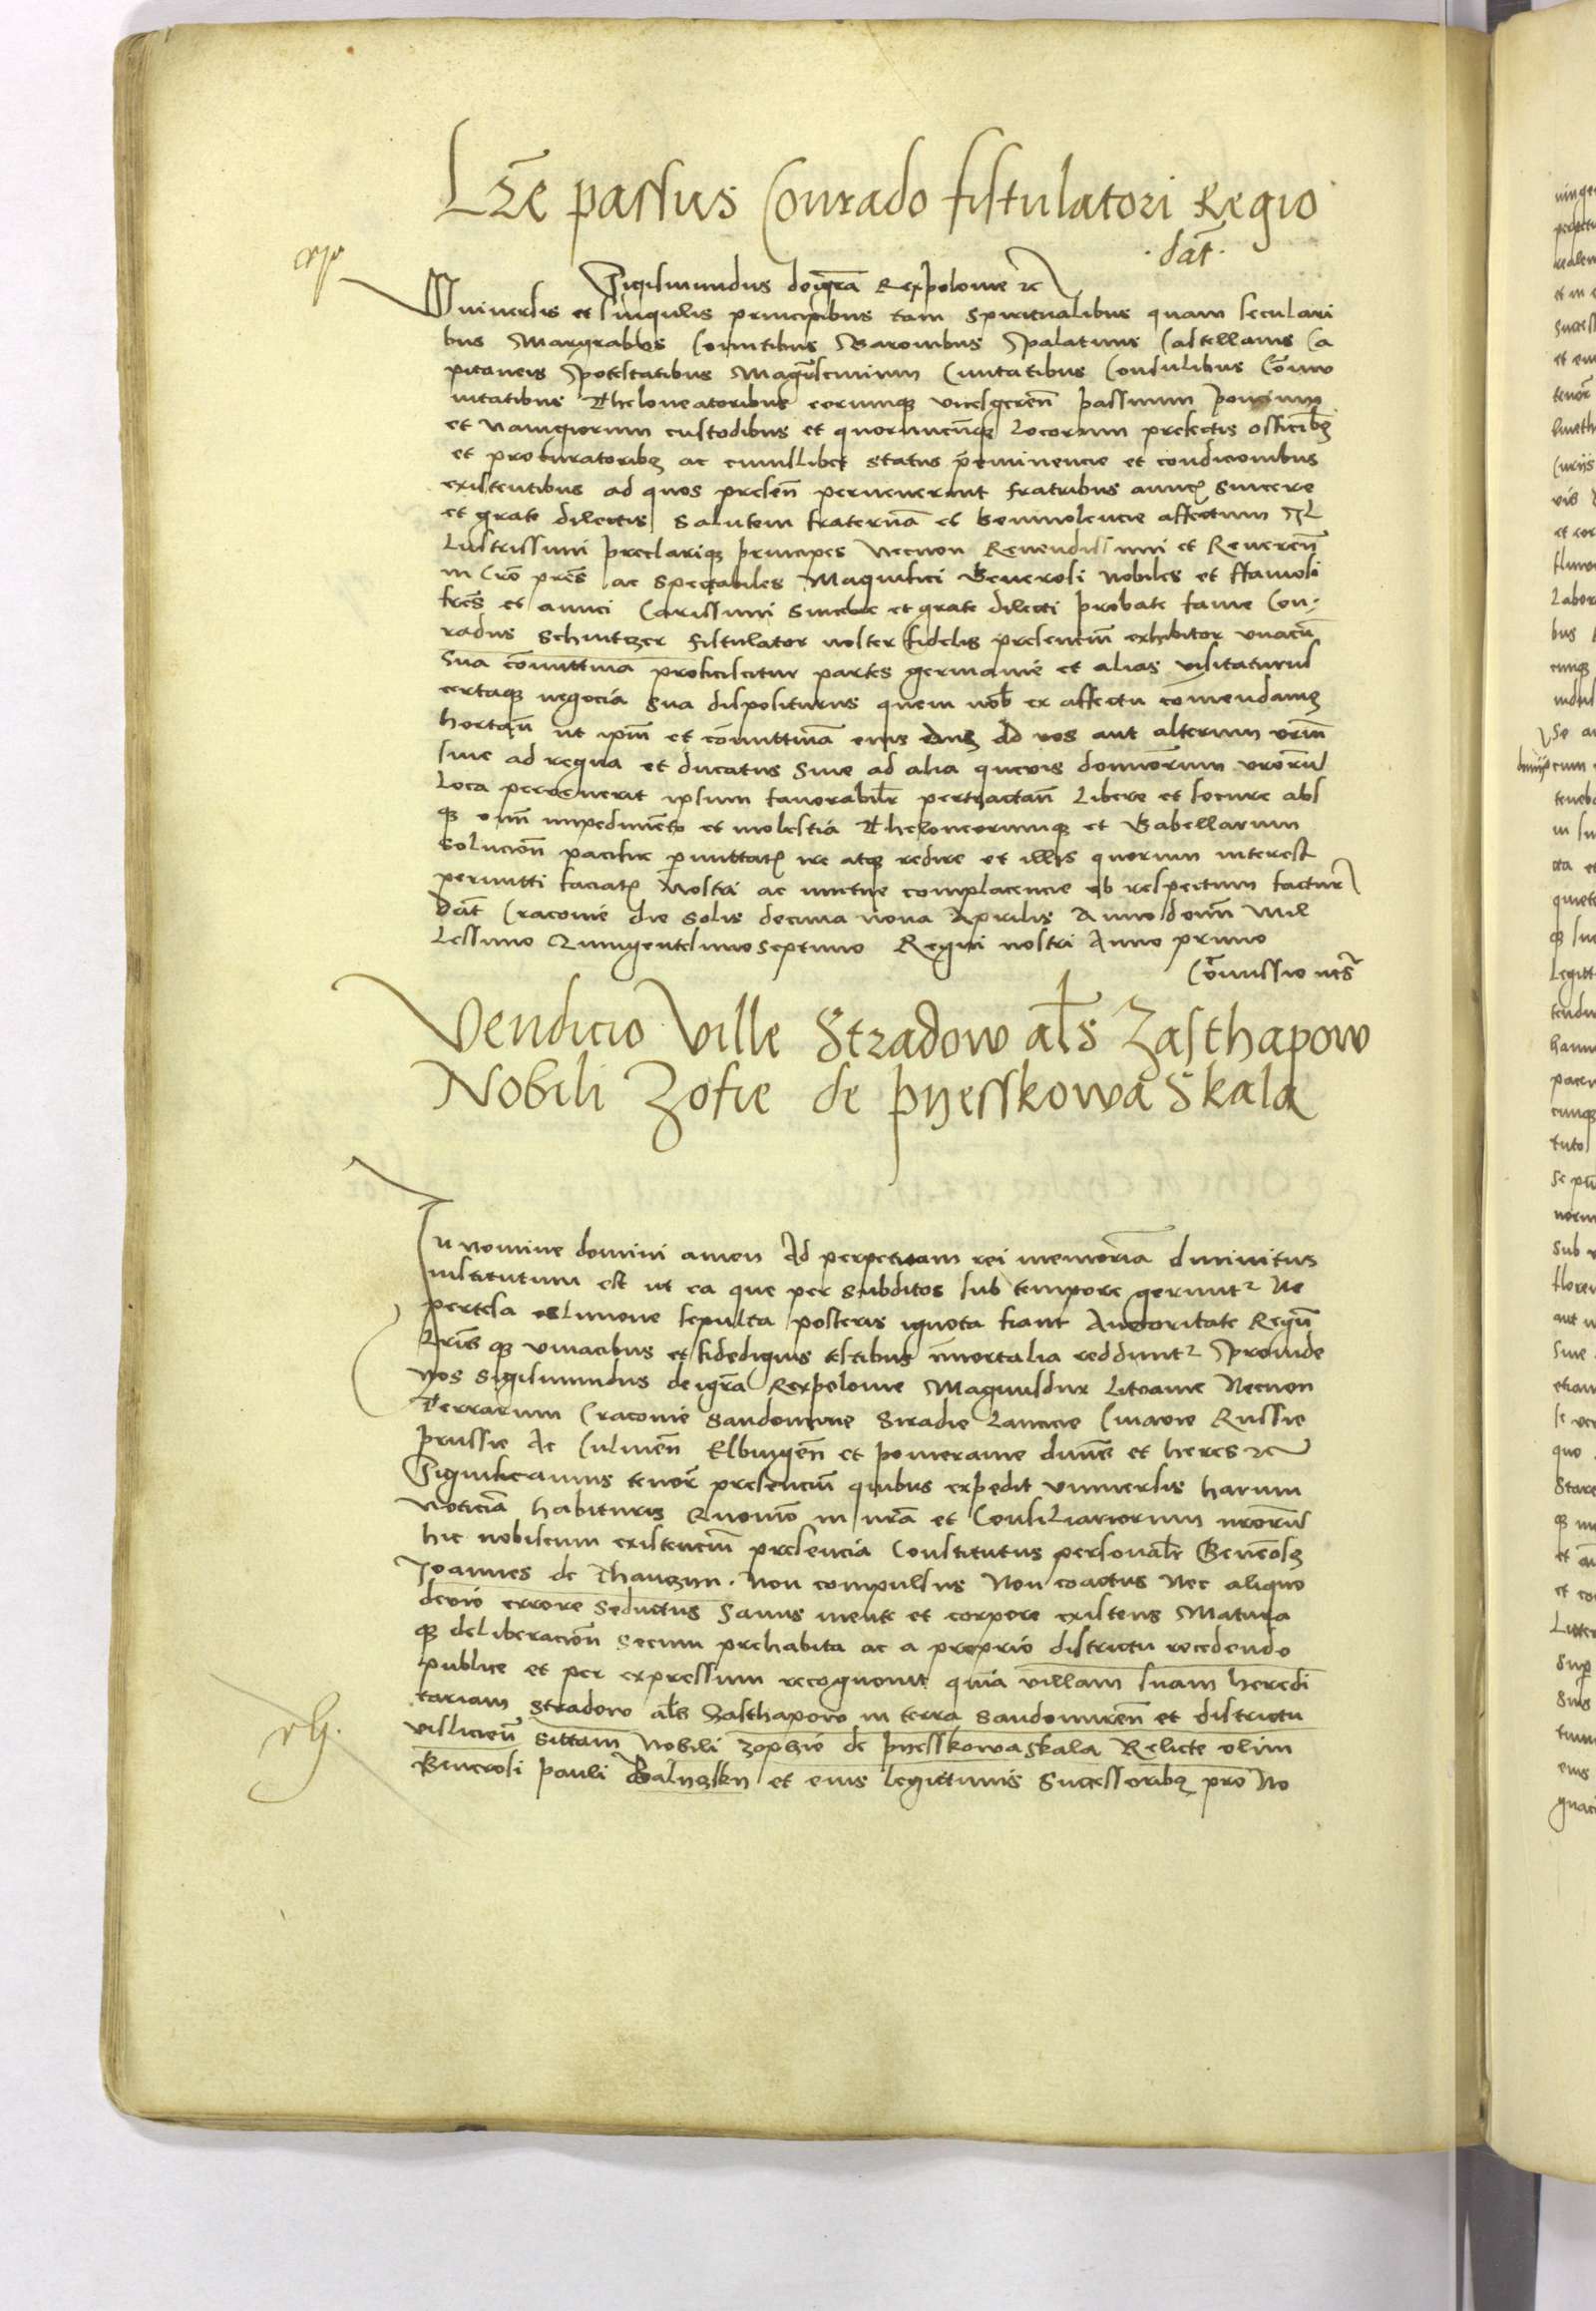 Lr̃e passus Conrado fistulatori Regio
dat̃
Sigismundus dei gr̃a Rex polonie ⁊c
Vniuersis et singulis principibus tam spiritualibus quam seculari
bus Margrabbis Comitibus Baronibus Palatinis Castellanis Ca
pitaneis Potestatibus Magistr̃ Ciuitatibus Consulibus Cõmu
nitatibus Theloneatoribus eorumq vicesgeren̄ passuum poncium
et nauigiorum custodibus et quorumcunq locorum prefectis officibꝫ
et procuratoribꝫ ac cuiuslibet status p̄eminencie et condicionibus
existentibus ad quos presen̄ peruenerint fratribus amicis sincere
et grate dilectis Salutem fraternã et beniuolencie affectum Il
lustrissimi preclariq principes Necnon Reuendissimi et Reueren̄
in Cr̃o pr̃es ac spectabiles Magnifici Generosi Nobiles et ffamosi
fr̃es et amici Carissimi sincere et grate dilecti probate fame Con
radus Schnitzer fistulator noster fidelis presenciũ exhibitor vnacũ
sua comittiua proficiscitur partes germanie et alias visitaturus
certaq negocia sua dispositurus quem vob̃ ex affectu comendamꝫ
hortan̄ ut ipm̃ et comittiuã eius dũ ad vos aut alterum vr̃m̃
siue ad regna et ducatus siue ad alia queuis dominorum vr̃orũ
loca peruenerit ipsum fauorabil̃r pertractan̄ libere et secure abs
q omi impedimento et molestia Theloneorumq et Gabellarum
solucion̄ pacifice permittatis ire atq redire et illis quorum interest
permitti faciatis Nostri ac mutue complacencie ob respectum factur̃
Dat̃ Cracouie die solis decima nona Aprilis Anno domĩ Mil
lessimo Quingentesimo septimo Regni nostri Anno primo
Cõmissio
Vendicio Ville Stradow al̃s Zasthapow
Nobili Zofie de pyesskowa Skala
In nomine domini amen Ad perpetuam rei memoriã diuinitus
institutum est ut ea que per subditos sub tempore gerunt᷑ Ne
pertesa obliuione sepulta posteris ignota fiant Auctoritate Regũ
Lris q viuacibus et fidedignis testibus imortalia reddunt᷑ Proinde
Nos Sigismundus dei gr̃a Rex polonie Magnusdux Litwanie Necnon
Terrarum Cracouie Sandomirie Siradie Lancicie Cuiauie Russie
prussie Ac Culmen̄ Elbingen̄ et pomeranie dnus et heres ⁊c
Significamus tenor̃ presenciũ quibus expedit vniuersis harum
noticiã habituris Quomõ in nr̃a et Consiliariorum nr̃orũ
hic nobiscum existenciũ presencia Constitutus personal̃r Generosꝫ
Joannes de Thanczin Non compulsus Non coactus Nec aliquo
deuio errore seductus Sanus mente et corpore existens Matura
q deliberacion̄ secum prehabita ac a proprio districtu recedendo
publice et per expressum recognouit quia villam suam heredi
tariam Stradow al̃s Zasthapow in terra Sandomiren̄ et districtu
vislicien̄ sittam Nobili Zophie de pyesskowaskala Relicte olim
Generosi pauli et eius legittimis Successoribꝫ pro No